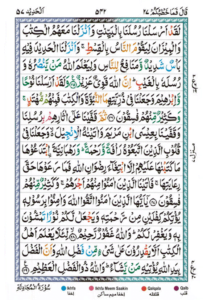 قَالَ فَمَا خَطْبُكُمْ ٢٧ ٥٤٢ اَلْحَدِيْد ٥٧
لَقَدْ اَرْسَلْنَا رُسُلَنَا بِالْبَيِّنٰتِ وَاَنْزَلْنَا مَعَهُمُ الْكِتٰبَ
وَالْمِيْزَانَ لِيَقُوْمَ النَّاسُ بِالْقِسْطِ ۚ وَاَنْزَلْنَا الْحَدِيْدَ فِيْهِ
بَاْسٌ شَدِيْدٌ وَّمَنَافِعُ لِلنَّاسِ وَلِيَعْلَمَ اللّٰهُ مَنْ يَّنْصُرُهٗ وَ
رُسُلَهٗ بِالْغَيْبِ ؕ اِنَّ اللّٰهَ قَوِىٌّ عَزِيْزٌ وَلَقَدْ اَرْسَلْنَا نُوْحًا
وَّاِبْرٰهِيْمَ وَجَعَلْنَا فِىْ ذُرِّيَّتِهِمَا النُّبُوَّةَ وَالْكِتٰبَ فَمِنْهُمْ مُّهْتَدٍ ۚ
وَكَثِيْرٌ مِّنْهُمْ فٰسِقُوْنَ ثُمَّ قَفَّيْنَا عَلٰٓى اٰثَارِهِمْ بِرُسُلِنَا
وَقَفَّيْنَا بِعِيْسَى ابْنِ مَرْيَمَ وَاٰتَيْنٰهُ الْاِنْجِيْلَ ۙ وَجَعَلْنَا فِىْ
قُلُوْبِ الَّذِيْنَ اتَّبَعُوْهُ رَاْفَةً وَّرَحْمَةً ؕ وَرَهْبَانِيَّةَ ۨابْتَدَعُوْهَا
مَا كَتَبْنٰهَا عَلَيْهِمْ اِلَّا ابْتِغَآءَ رِضْوَانِ اللّٰهِ فَمَا رَعَوْهَا حَقَّ
رِعَايَتِهَا ۚ فَاٰتَيْنَا الَّذِيْنَ اٰمَنُوْا مِنْهُمْ اَجْرَهُمْ ۚ وَكَثِيْرٌ مِّنْهُمْ
فٰسِقُوْنَ يٰٓاَيُّهَا الَّذِيْنَ اٰمَنُوا اتَّقُوا اللّٰهَ وَاٰمِنُوْا بِرَسُوْلِهٖ
يُؤْتِكُمْ كِفْلَيْنِ مِنْ رَّحْمَتِهٖ وَيَجْعَلْ لَّكُمْ نُوْرًا تَمْشُوْنَ
بِهٖ وَيَغْفِرْ لَكُمْ ؕ وَاللّٰهُ غَفُوْرٌ رَّحِيْمٌ لِّئَلَّا يَعْلَمَ اَهْلُ
الْكِتٰبِ اَلَّا يَقْدِرُوْنَ عَلٰى شَىْءٍ مِّنْ فَضْلِ اللّٰهِ وَاَنَّ الْفَضْلَ
بِيَدِ اللّٰهِ يُؤْتِيْهِ مَنْ يَّشَآءُ ؕ وَاللّٰهُ ذُو الْفَضْلِ الْعَظِيْمِ